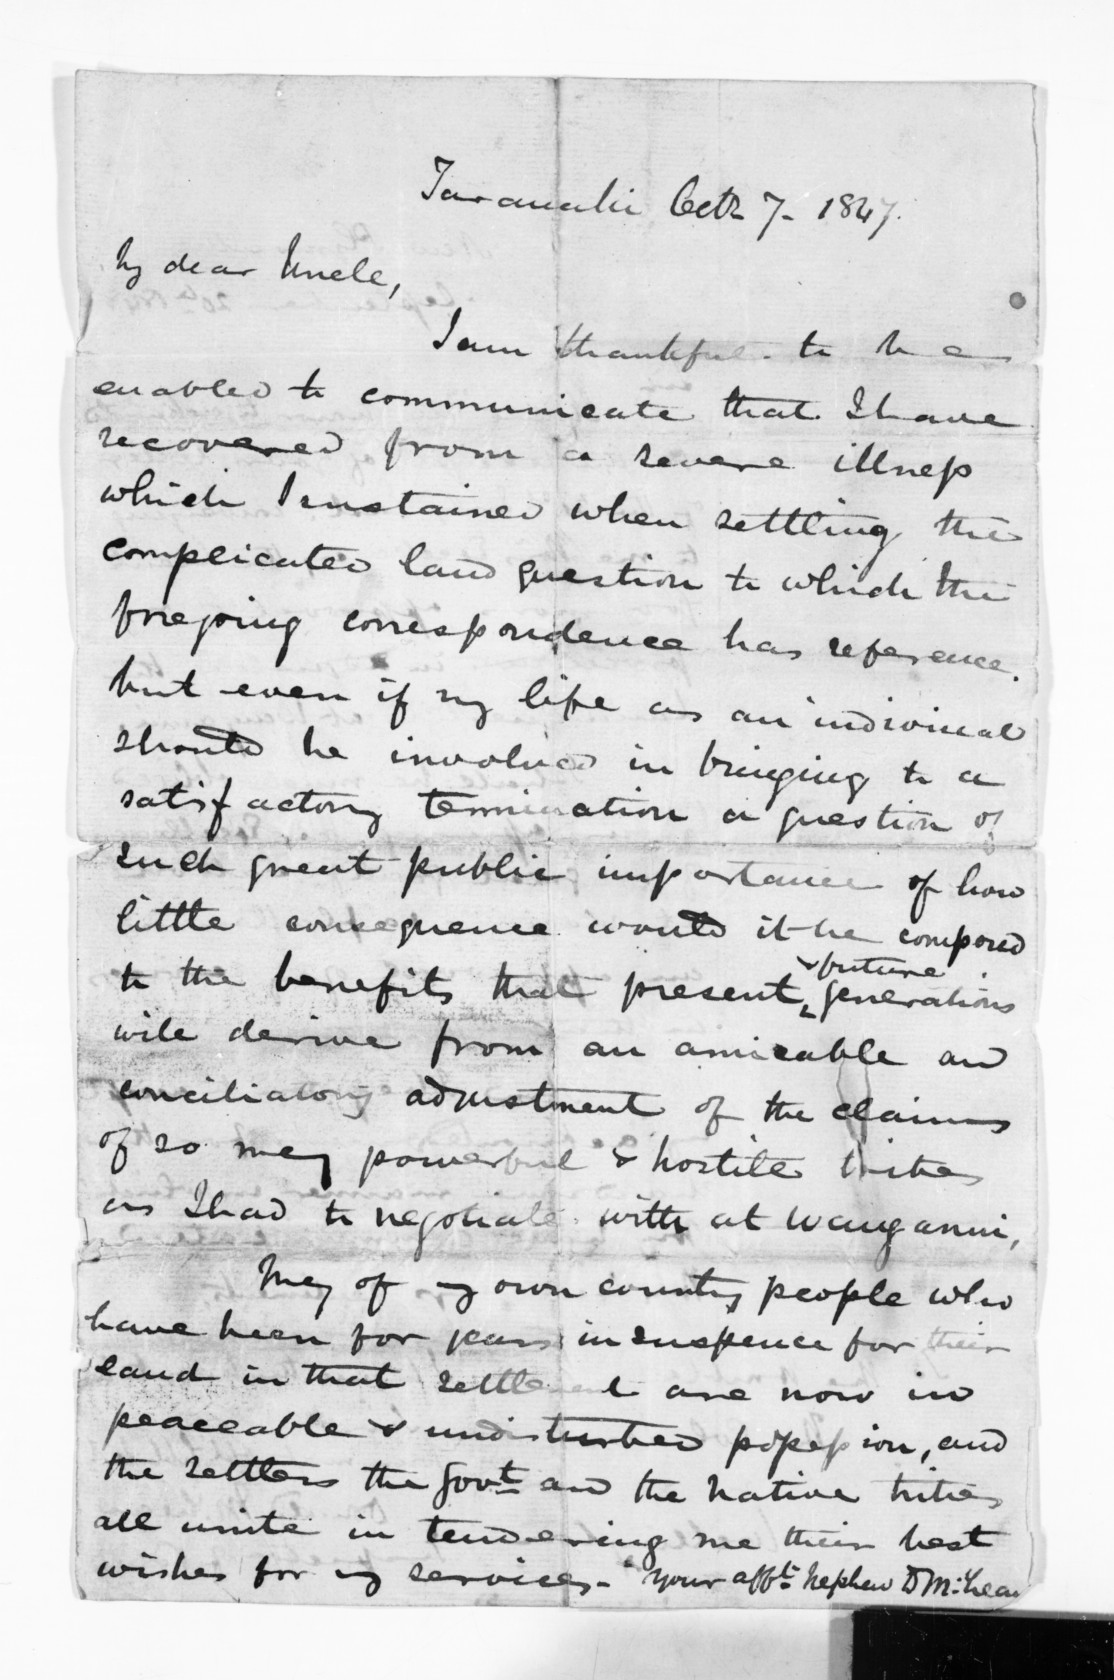 Taranaki Octr 7. 1847.
My dear Uncle,
I am thankful to be
enabled to communicate that I have
recovered from a severe illness
which I sustained when settling the
complicated land question to which the
foregoing correspondence has reference.
but even if my life as an individual
should be involved in bringing to a
satisfactory termination a question of
such great public importance of how
little consequence would it be compared
to the benefits that present & future generations
will derive from an amicable and
conciliatory adjustment of the claims
of so many powerful & hostile tribes
as I had to negotiate with at Wanganui,
Many of my own country people who
have been for years in suspence for their
land in that settlement are now in
peaceable & undisturbed possession, and
the settlers the Govt. and the native tribes
all unite in tendering me their best
wishes for my services. Your affte. nephew D McLean